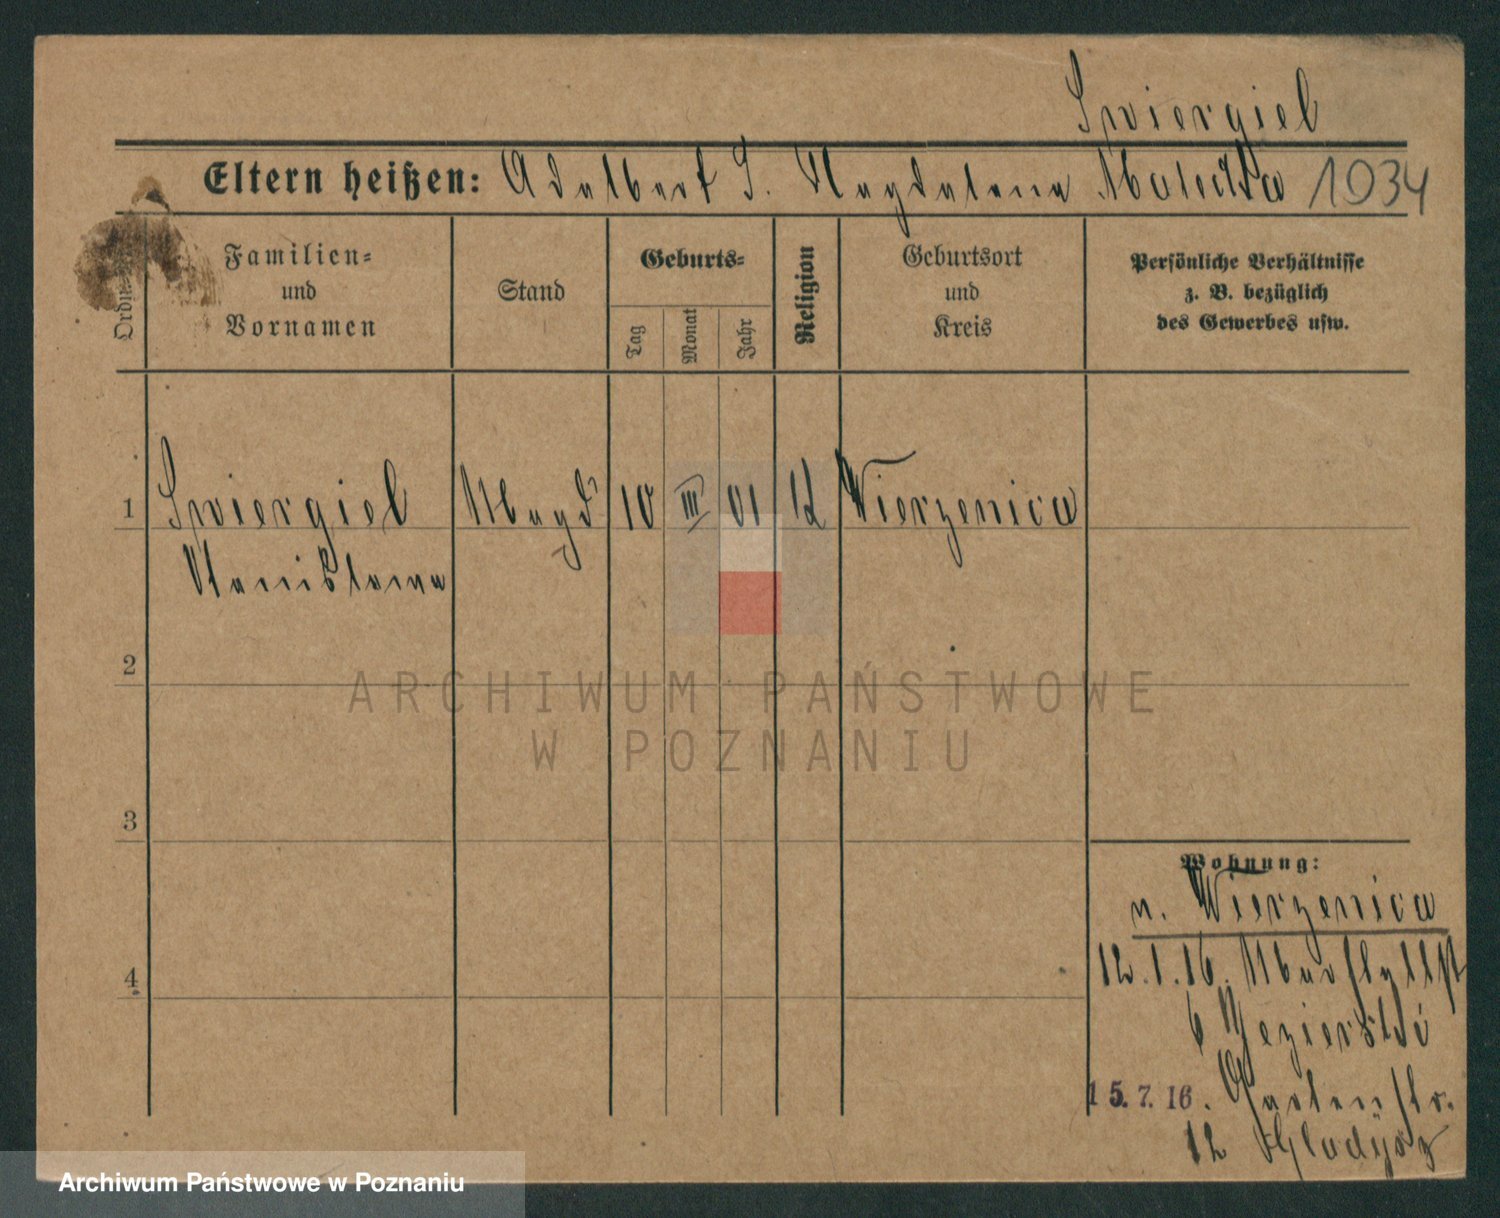 Swiergiel
Eltern heißen: Adalbert S. Magdalena Malecka 1034
Familien= und Vornamen
Stand
Geburts=
Tag
Monat
Jahr
Religion
Geburtsort und Kreis
Persönliche Verhältnisse
z. B. bezüglich
des Gewerbes usw.
1 Swiergiel Magd 10 III 01 k Wierzenica
Stanislawa
2
3
4
Wohnung:
n. Wierzenica
12.1.16.
6
15.7.16. Gartenstr.
12 Gladysz
ARCHIWUM PAŃSTWOWE
W POZNANIU
Archiwum Państwowe w Poznaniu